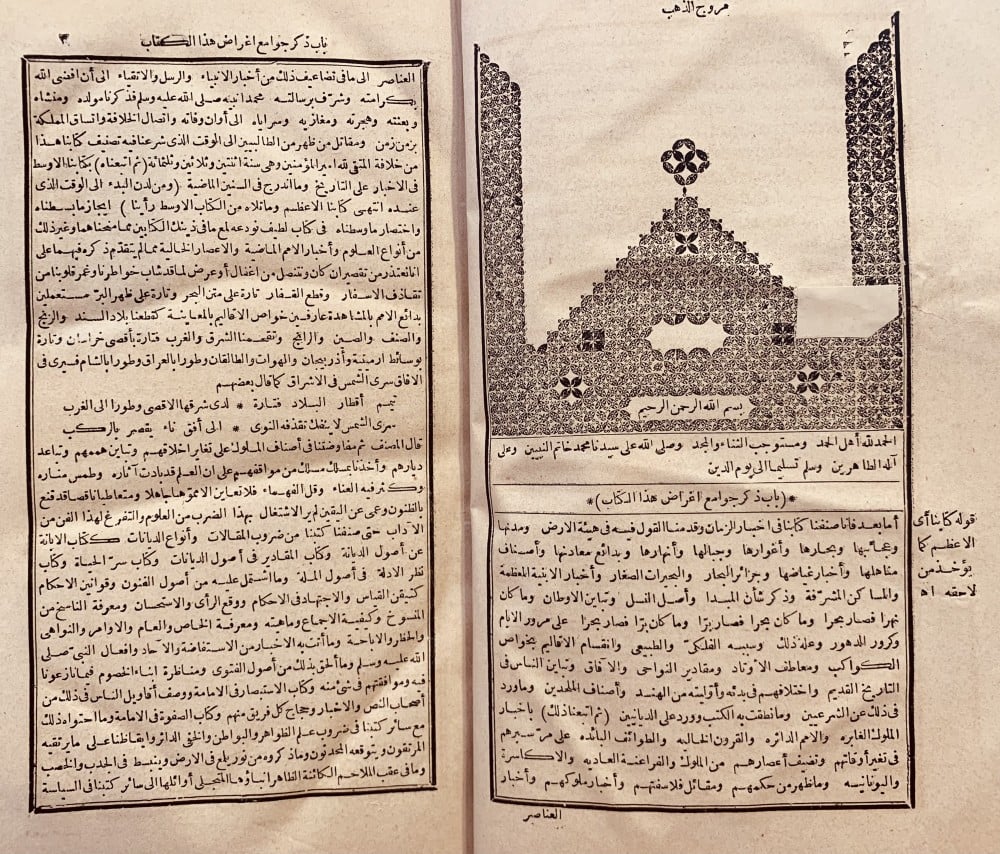 مروج الذهب
بسم الله الرحمن الرحيم
الحمد لله أهل الحمد ومستوجب الثناء والمجد وصلى الله على سيدنا محمد خاتم النبيين وعلى
آله الطاهرين وسلم تسليما الى يوم الدين
*(باب ذكر جوامع اغراض هذا الكتاب)*
أما بعد فانا صنفنا كتابنا فى اخبار الزمان وقدمنا القول فيه فى هيئة الارض ومدنها
وعجائبها وبحارها وأغوارها وجبالها وأنهارها وبدائع معادنها وأصناف
مناهلها وأخبار غياضها وجزائر البحار والبحيرات الصغار وأخبار الابنية المعظمة
والمساكن المشرفة وذكر شأن المبدا وأصل النسل وتباين الاوطان وما كان
نهرا فصار بحرا وما كان بحرا فصار برا وما كان برا فصار بحرا على مرور الايام
وكرور الدهور وعلة ذلك وسببه الفلكى والطبيعى وانقسام الاقاليم بخواص
الكواكب ومعاطف الاوتاد ومقادير النواحى والآفاق وتباين الناس فى
التاريخ القديم واختلافهم فى بدئه وأوليته من الهند وأصناف الملحدين وما ورد
فى ذلك عن الشرعيين وما نطقت به الكتب وورد على الديانيين (ثم اتبعنا ذلك) باخبار
الملوك الغابره والامم الداثره والقرون الخاليه والطوائف البائده على مر سيرهم
فى تغير أوقاتهم وتضيف أعصارهم من الملوك والفراعنة العاديه والاكاسرة
واليونانيسه وما ظهر من حكمهم ومقائل فلاسفتهم وأخبار ملوكهم وأخبار
العناصر
قوله كتابنا أى
الاعظم كما
يؤخذ من
لاحقه اه
باب ذكر جوامع اغراض هذا الكتاب
٣
العناصر الى ما فى تضاعيف ذلك من أخبار الانبياء والرسل والاتقياء الى أن افضى الله
بكرامته وشرف برسالته محمدا نبيه صلى الله عليه وسلم فذكرنا مولده ومنشاه
وبعثته وهجرته ومغازيه وسراياه الى أوان وفاته واتصال الخلافة واتساق المملكة
بزمن زمن ومقاتل من ظهر من الطالبيين الى الوقت الذى شرعنا فيه تصنيف كتابنا هذا
من خلافة المتقى لله امير المؤمنين وهى سنة اثنتين وثلاثين وثلثمائة (ثم اتبعناه) بكتابنا الاوسط
فى الاخبار على التاريخ وما اندرج فى السنين الماضية (ومن لدن البدء الى الوقت الذى
عنده انتهى كتابنا الاعظم وما تلاه من الكتاب الاوسط رأينا) ايجاز ما بسطناه
واختصار ما وسطناه فى كتاب لطيف نودعه لمع ما فى ذينك الكتابين مما ضمناهما وغير ذلك
من أنواع العلوم وأخبار الامم الماضية والاعصار الخالية مما لم يتقدم ذكره فيهما على
انا نعتذر من تقصير ان كان ونتنصل من اغفال أو عرض لما قد شاب خواطرنا وغمر قلوبنا من
تقاذف الاسفار وقطع القفار تارة على متن البحر وتارة على ظهر البر مستعملين
بدائع الامم بالمشاهدة عارفين خواص الاقاليم بالمعاينة كقطعنا بلاد السند والزنج
والصنف والصين والزانج وتقحمنا الشرق والغرب فتارة بأقصى خراسان وتارة
بوسائط ارمينية وأذربيجان والهوات والطالقان وطورا بالعراق وطورا بالشام فسيرى فى
الآفاق سرى الشمس فى الاشراق كما قال بعضهم
تيمم أقطار البلاد فتارة * لدى شرقها الاقصى وطورا الى الغرب
سرى الشمس لا ينفك تقذفه النوى * الى أفق ناء يقصر بالركب
قال المصنف ثم مفاوضتنا فى أصناف الملوك على تغاير اخلاقهم وتباين هممهم وتباعد
ديارهم وأخذنا بمسك مسلك من مواقفهم على ان العلم قد بادت آثاره وطمس مناره
وكثر فيه العناء وقل الفهماء فلا تعاين الا مموها جاهلا ومتعاطيا ناقصا قد قنع
بالظنون وعمى عن اليقين لم ير الاشتغال بهذا الضرب من العلوم والتفرغ لهذا الفن من
الآداب حتى صنفنا كتبنا من ضروب المقالات وأنواع الديانات ككتاب الابانة
عن أصول الديانة وكتاب المقادير فى أصول الديانات وكتاب سر الحياة وكتاب
نظر الادلة فى أصول الملة وما اشتمل عليه من أصول الفنون وقوانين الاحكام
كتيقن القياس والاجتهاد فى الاحكام ووقع الرأى والاستحسان ومعرفة الناسخ من
المنسوخ وكيفية الاجماع وماهيته ومعرفة الخاص والعام والاوامر والنواهى
والحظر والاباحة وما أتت به الاخبار من الاستفاضة والآحاد وافعال النبى صلى
الله عليه وسلم وما ألحق بذلك من أصول الفتوى ومناظرة ابناء الخصوم فيما نازعونا
فيه وموافقتهم فى شئ منه وكتاب الاستبصار فى الامامة ووصف أقاويل الناس فى ذلك من
أصحاب النص والاخبار وحجاج كل فريق منهم وكتاب الصفوة فى الامامة وما احتواه ذلك
مع سائر كتبنا فى ضروب علم الظواهر والبواطن والخفى الدائر وايقاظنا على ما يرتقيه
المرتقون ويتوقعه المحدثون وما ذكروه من نور يلمع فى الارض وينبسط فى الجدب والخصب
وما فى عقب الملاحم الكائنة الظاهر انباؤها المتجلى أوائلها الى سائر كتبنا فى السياسة